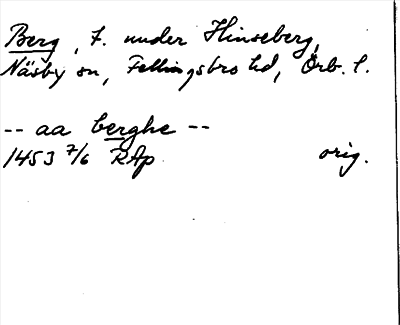 Berg, f. under Hinseberg,
Näsby sn, Fellingsbro hd, Örb. l.
-- aa berghe --
1453 7/6 RAp orig.